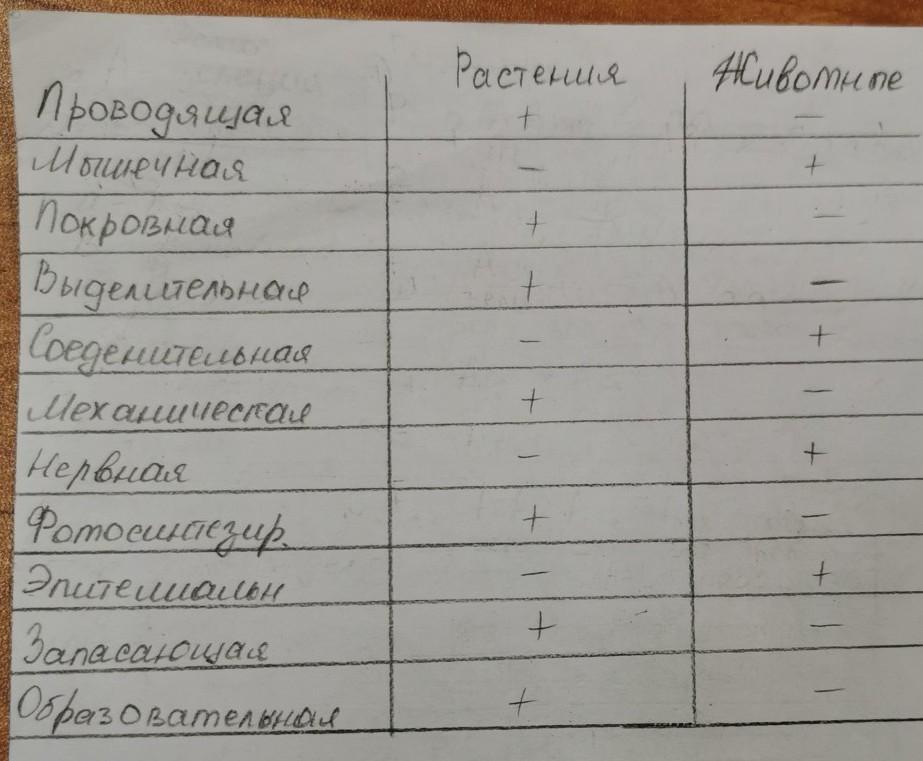 Растения Животные
Проводящая + —
Мышечная — +
Покровная + —
Выделительная + —
Соеденительная — +
Механическая + —
Нервная — +
Фотосинтезир. + —
Эпителиальн — +
Запасающая + —
Образовательная + —